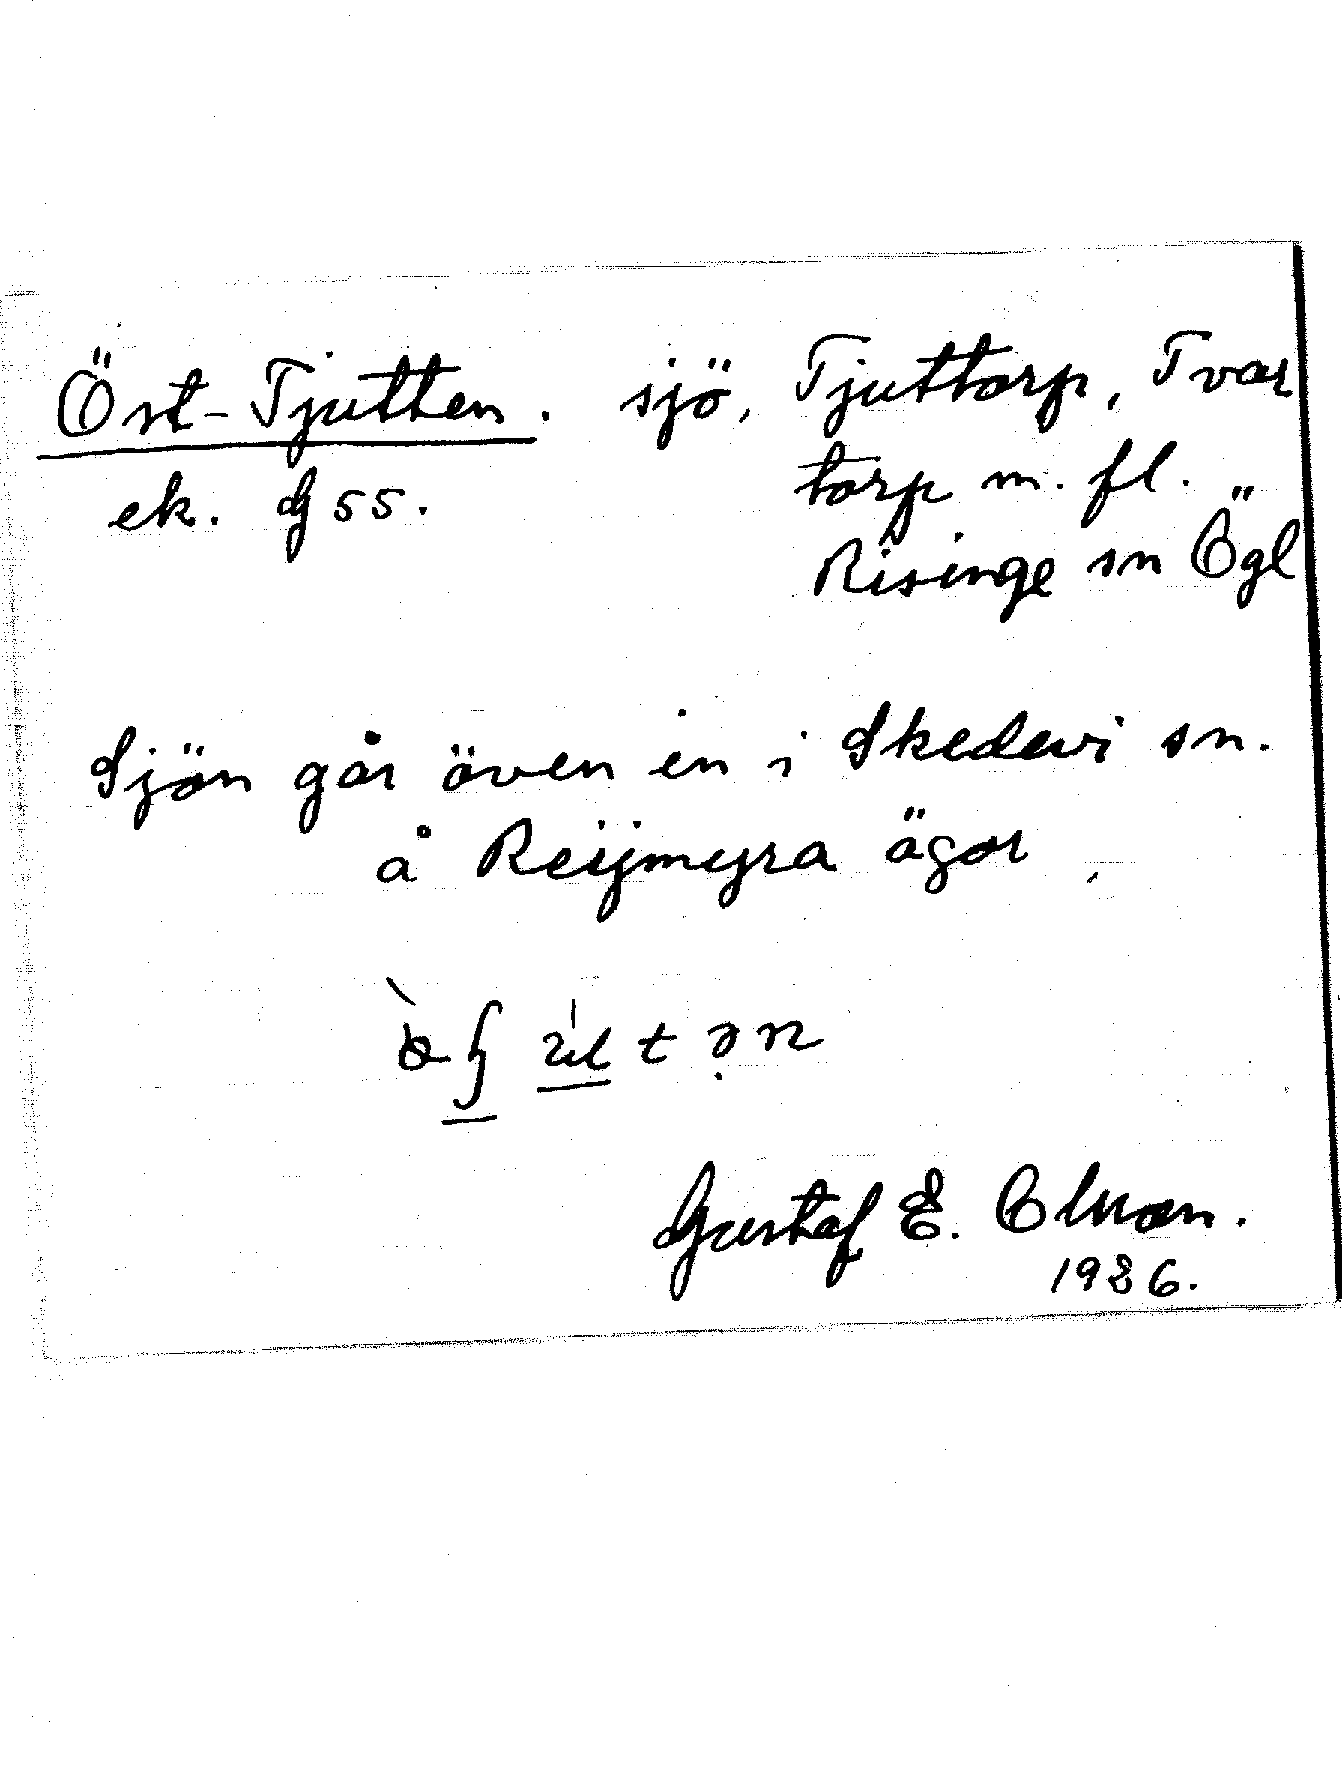 Öst-Tjutten. sjö, Tjuttorp, Tvar
ek. S 55. torp m. fl.
Risinge sn Ögl
Sjön går även in i Skedevi sn.
å Reijmyra ägor
Gustaf E. Olsson.
1936.